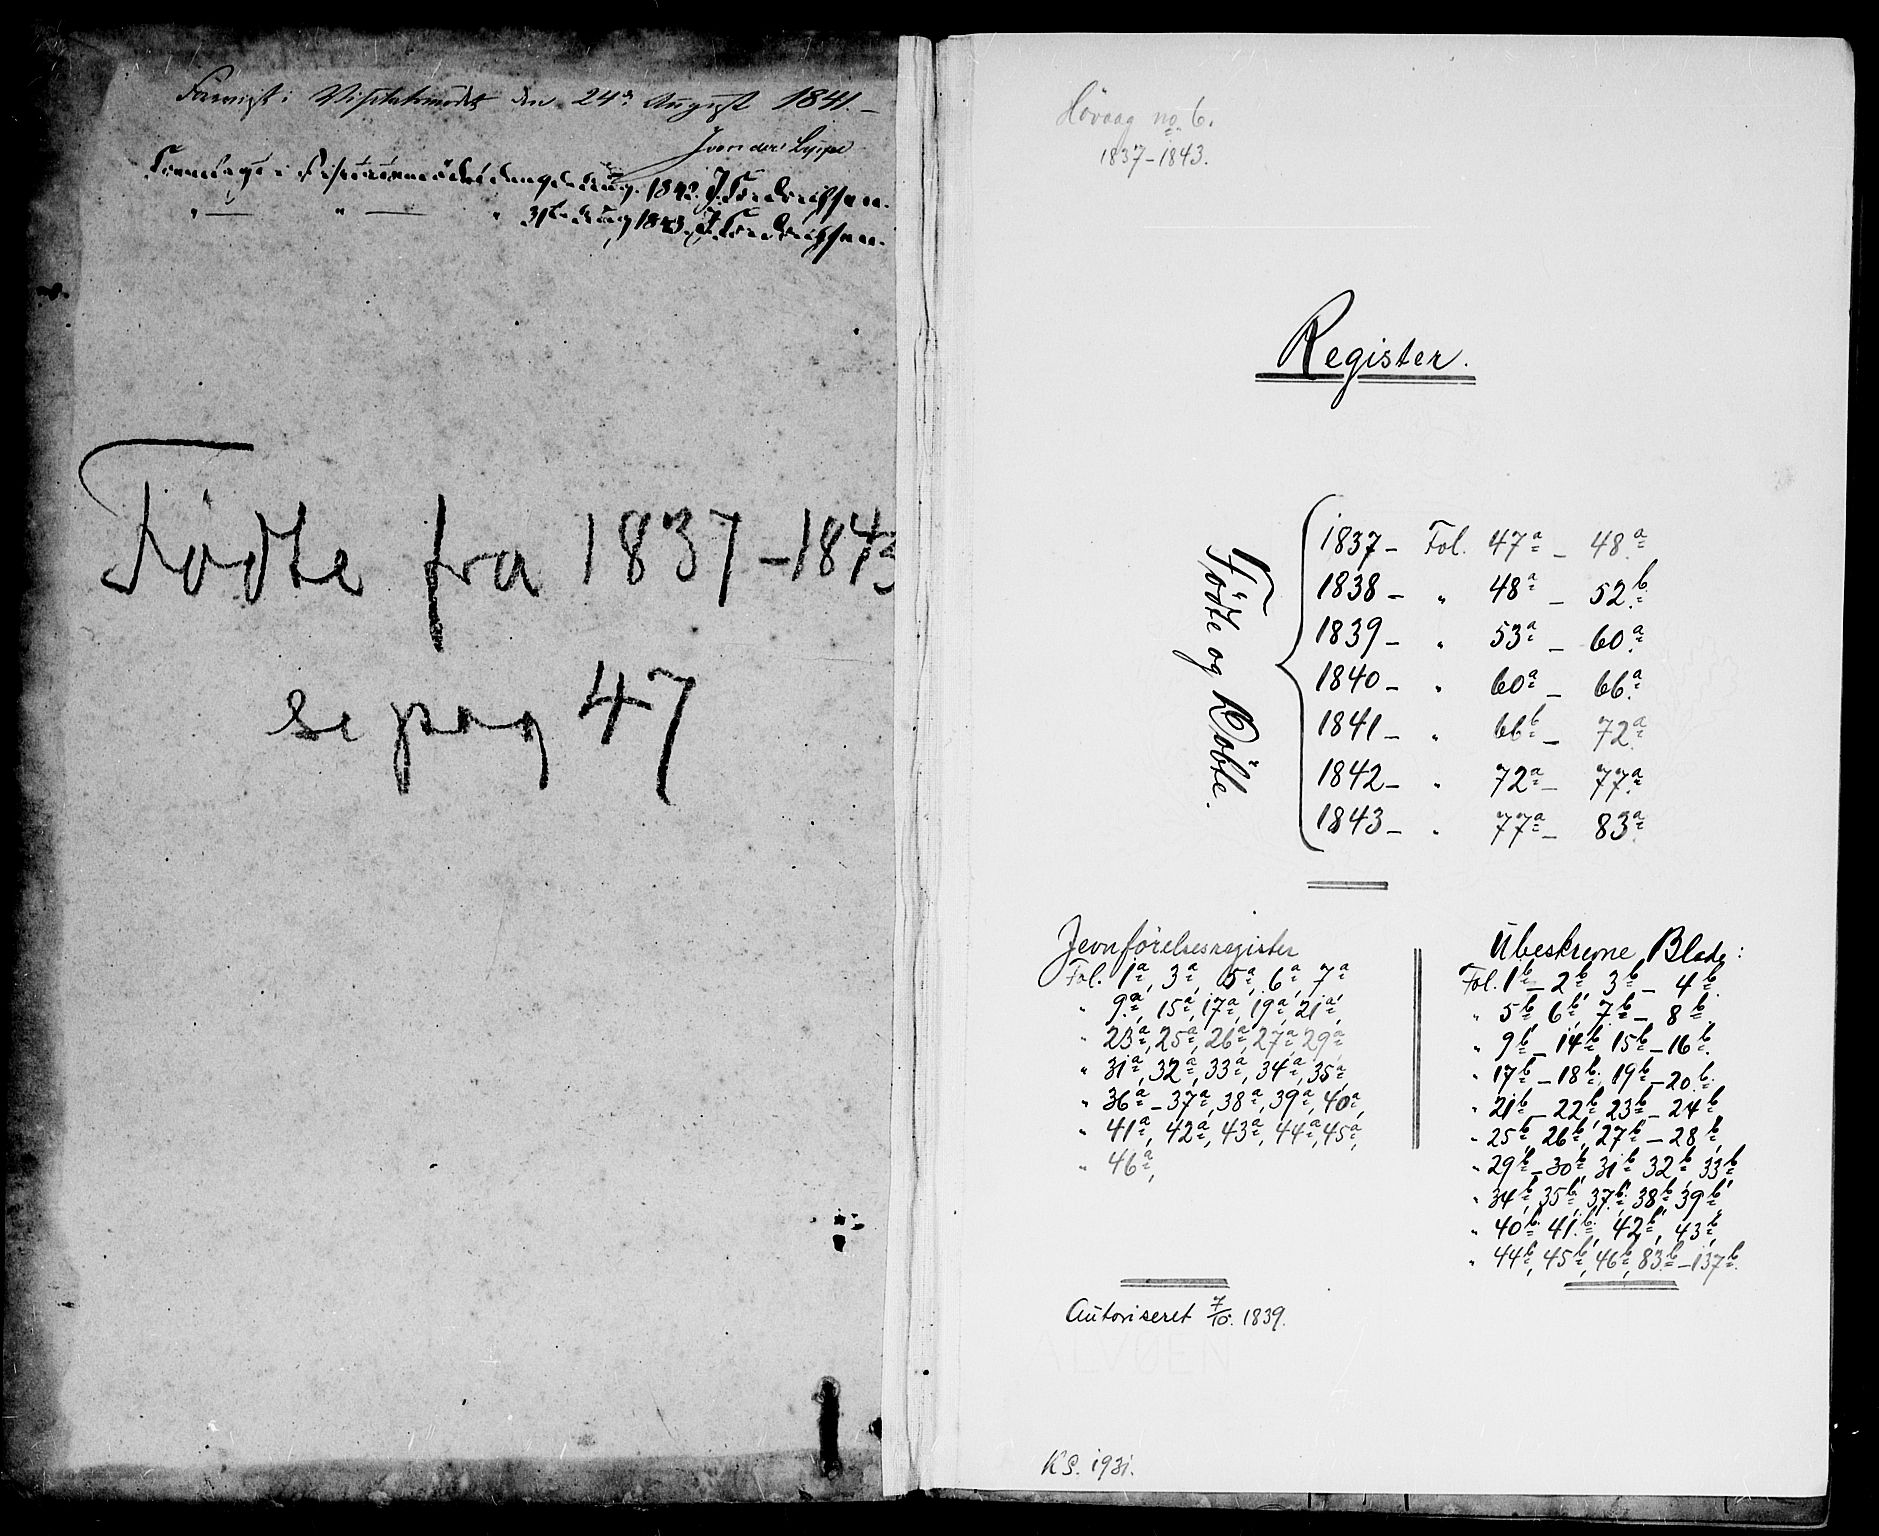 Fremlagt i Visitatsmødet den 24de August 1841. —
J von der Lippe
Fremlagt i Visitatsmødet den Aug. 1842. J. Fredrichsen.
" — " — " 31te Aug 1843. J. Fredrichsen.
Fødte fra 1837-1843
se pag 47
Høvaag no. 6.
1837-1843.
Register.
Fødte og Døbte.
1837 - Fol. 47a - 48a
1838 - " 48a - 52b
1839 - " 53a - 60a
1840 - " 60a - 66a
1841 - " 66b - 72a
1842 - " 72a - 77a
1843 - " 77a - 83a
Jevnførelsesregister
Fol. 1a, 3a, 5a, 6a, 7a
" 9a, 15a, 17a, 19a, 21a,
" 23a, 25a, 26a, 27a, 29a
" 31a, 32a, 33a, 34a, 35a,
" 36a - 37a, 38a, 39a, 40a,
" 41a, 42a, 43a, 44a, 45a,
" 46a,
Ubeskrevne Blade:
Fol. 1b - 2b, 3b - 4b.
" 5b, 6b, 7b - 8b.
" 9b - 14b, 15b - 16b.
" 17b - 18b, 19b - 20b.
" 21b - 22b, 23b - 24b,
" 25b, 26b, 27b - 28b,
" 29b - 30b, 31b, 32b, 33b
" 34b, 35b, 37b, 38b, 39b,
" 40b, 41b, 42b, 43b,
" 44b, 45b, 46b, 83b - 137b.
Autoriseret 7/10. 1839.
ALVØEN
KS. 1931.